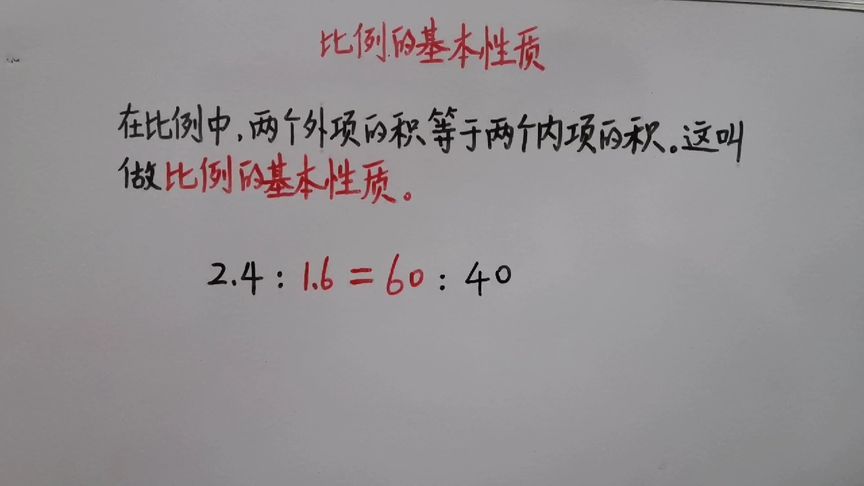 比例的基本性质
在比例中,两个外项的积等于两个内项的积。这叫
做比例的基本性质。
2.4:1.6=60:40